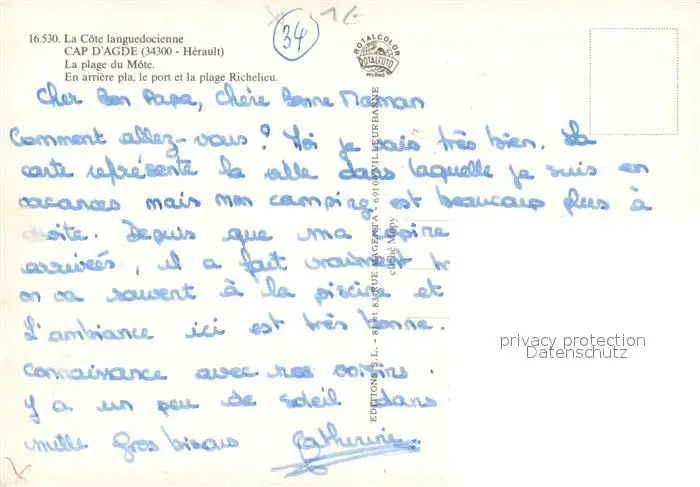 16.530. La Côte languedocienne
CAP D'AGDE (34300 - Hérault)
La plage du Môte.
En arrière pla, le port et la plage Richelieu.
34
1€
ROTALCOLOR
ROTALFOTO
MILANO
Cher Bon Papa, chère Bonne Maman
Comment allez-vous ? Moi je vais très bien. La
carte représente la ville dans laquelle je suis en
vacances mais mon camping est beaucoup plus à
droite. Depuis que ma
arrivées, il a fait vraiment
on va souvent à la piscine et
L'ambiance ici est très bonne.
connaissance avec nos voisins.
y a un peu de soleil dans
mille gros bisous Catherine
EDITIONS S.L. - 81 et 83 RUE MAGENTA - 69100 VILLEURBANNE
cliché Mopy
privacy protection
Datenschutz